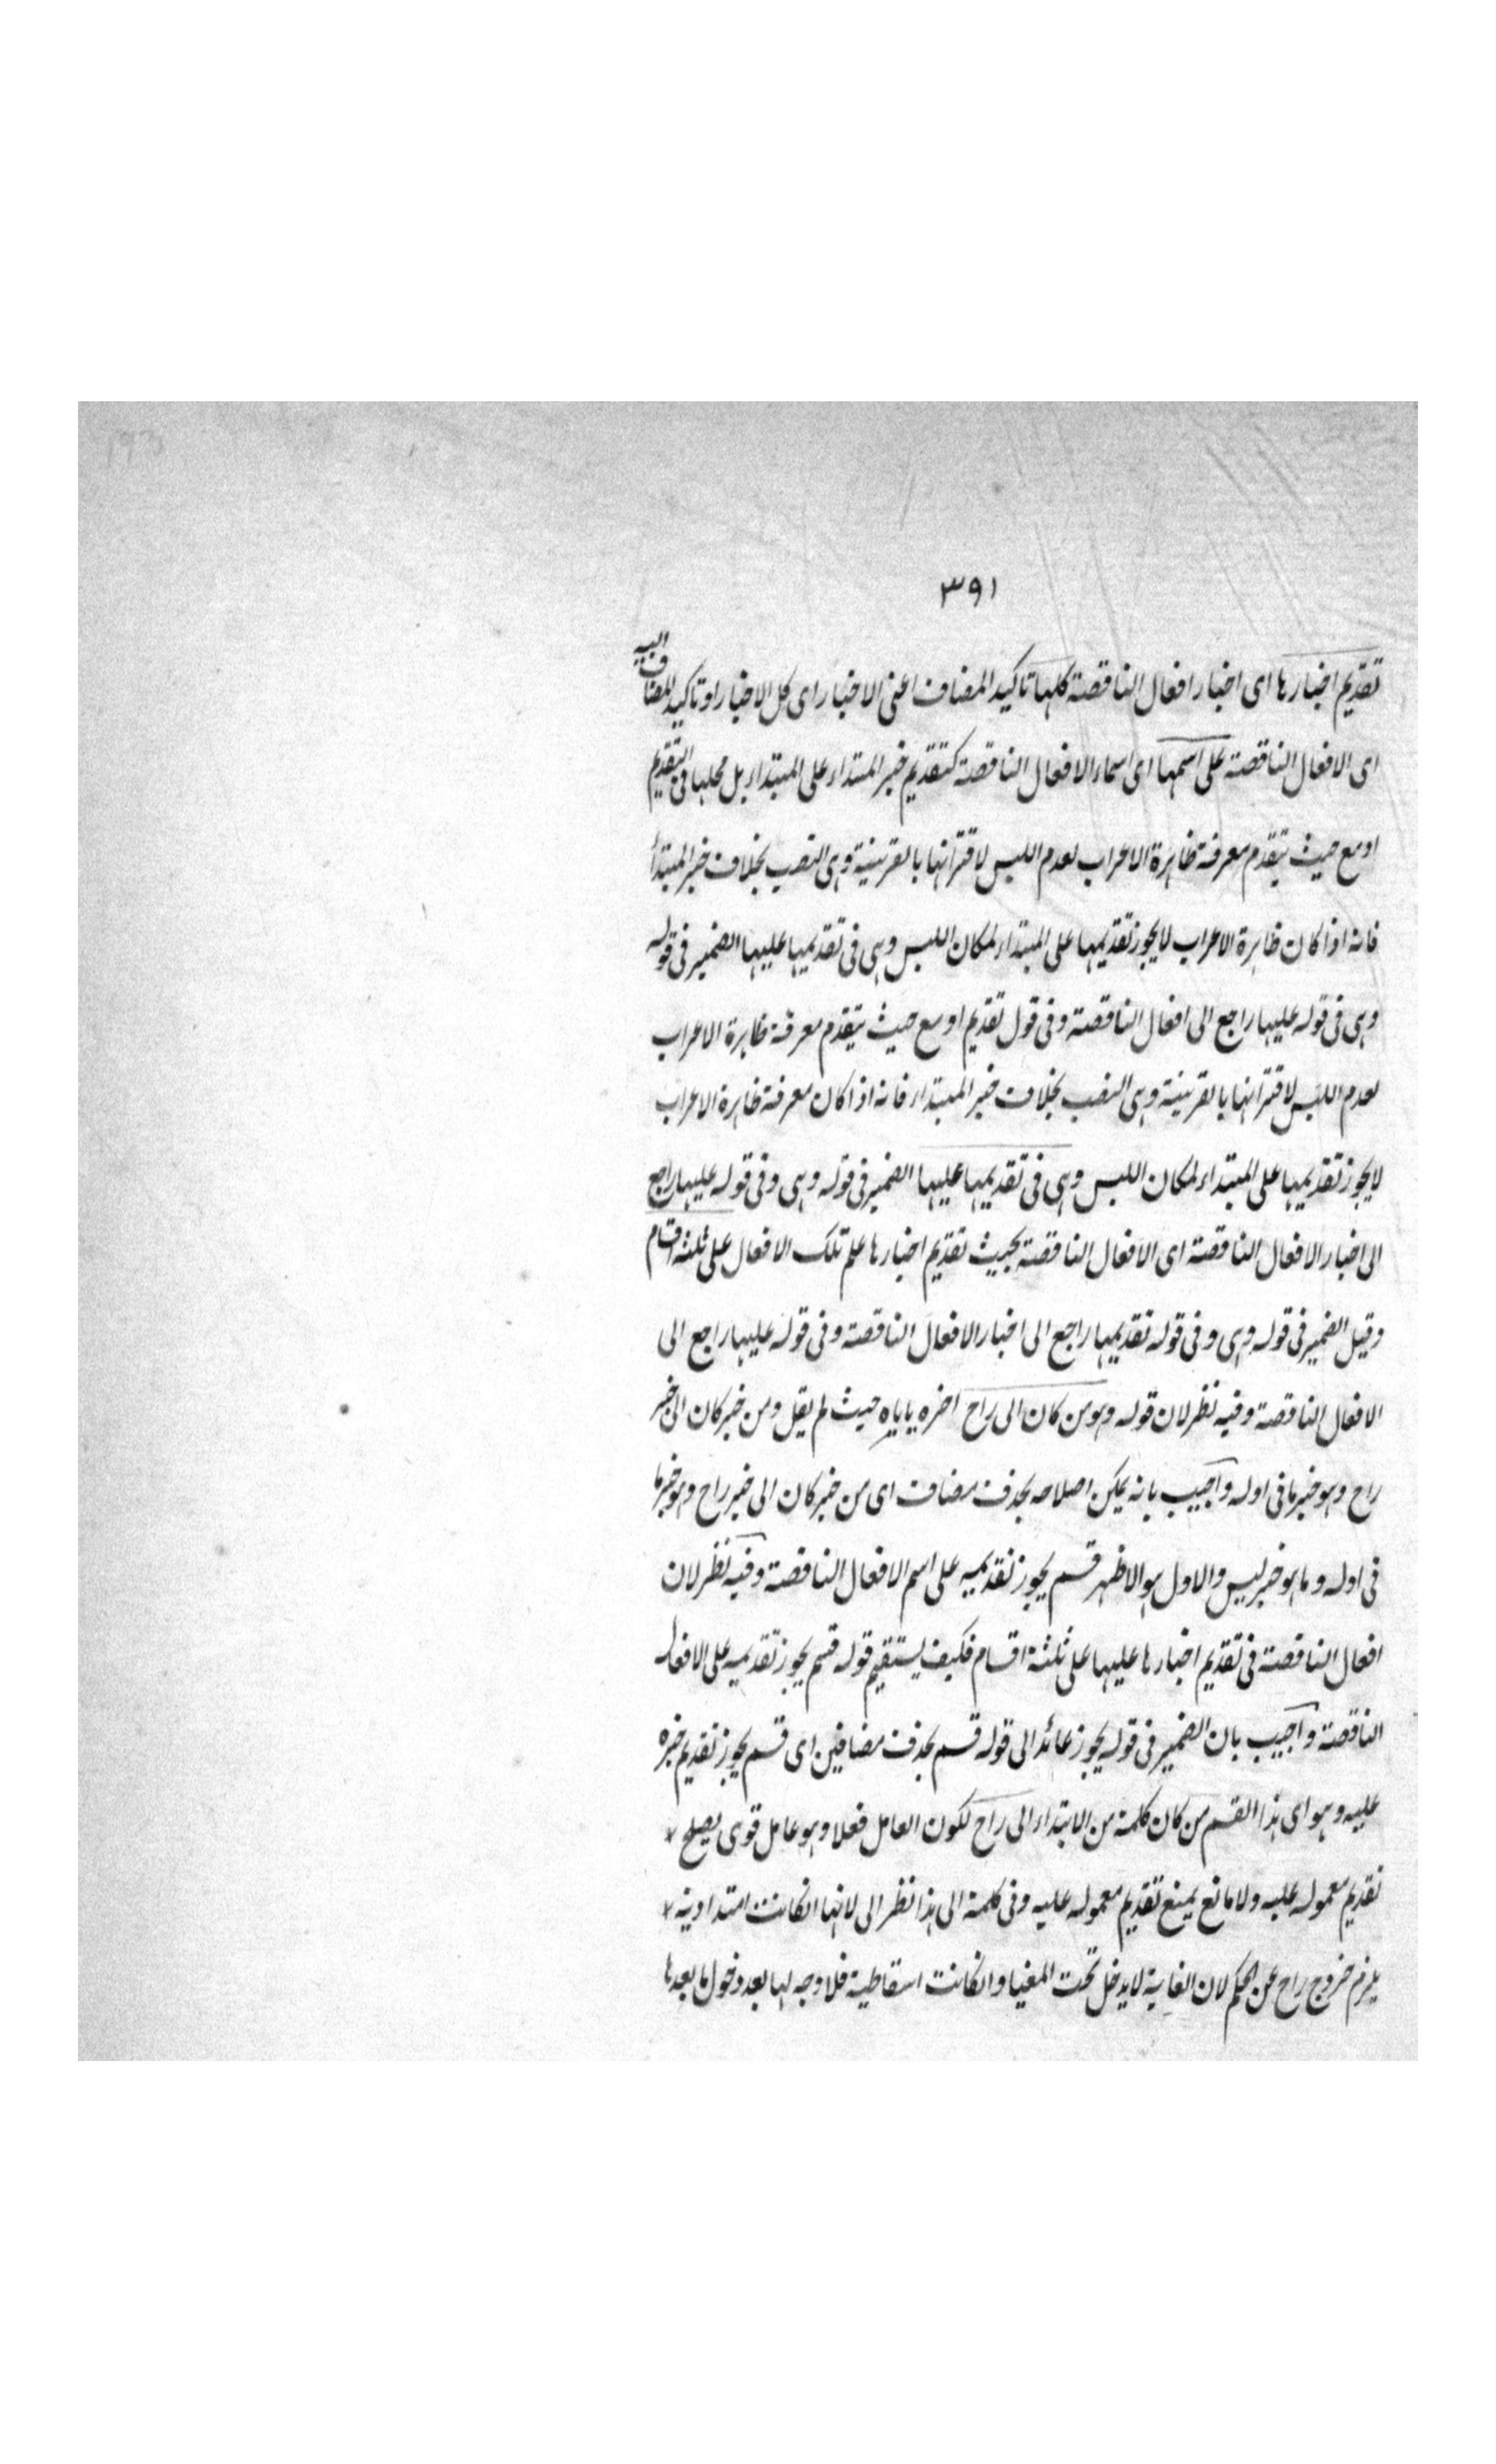 ٣٩١
تقديم اخبارها اى اخبار افعال الناقصة كلها تاكيد المضاف اعنى الاخبار اى كل الاخبار او تاكيد المضاف اليه
اى الافعال الناقصة على اسمها اى اسماء الافعال الناقصة كتقديم خبر المبتداء على المبتداء بل محلها فى التقديم
اومع حيث يتقدم معرفة ظاهرة الاعراب لعدم اللبس لاقترانها بالقرينة وهى النصب بخلاف خبر المبتدأ
فانه اذا كان ظاهرة الاعراب لا يجوز تقديمها على المبتداء لمكان اللبس وهى فى تقديمها عليها الضمير فى قوله
وهى فى قوله عليها راجع الى افعال الناقصة وفى قول تقديم اومع حيث يتقدم معرفة ظاهرة الاعراب
لعدم اللبس لاقترانها بالقرينة وهى النصب بخلاف خبر المبتداء فانه اذا كان معرفة ظاهرة الاعراب
لا يجوز تقديمها على المبتداء لمكان اللبس وهى فى تقديمها عليها الضمير فى قوله وهى وفى قوله عليها راجع
الى اخبار الافعال الناقصة اى الافعال الناقصة بحيث تقديم اخبارها علم تلك الافعال على ثلثه اقسام
وقيل الضمير فى قوله وهى وفى قوله تقديمها راجع الى اخبار الافعال الناقصة وفى قوله عليها راجع الى
الافعال الناقصة وفيه نظر لان قوله وهو من كان الى راح اخره ياباه حيث لم يقل ومن خبر كان الى خبر
راح وهو خبر ما فى اوله واجيب بانه يمكن اصلاحه بحذف مضاف اى من خبر كان الى خبر راح وهو خبر ما
فى اوله وما هو خبر ليس والاول هو الاظهر قسم يجوز تقديمه على اسم الافعال الناقصة وفيه نظر لان
افعال الناقصة فى تقديم اخبارها عليها على ثلثة اقسام فكيف يستقيم قوله قسم يجوز تقديمه على الافعال
الناقصة واجيب بان الضمير فى قوله يجوز عائد الى قوله قسم بحذف مضافين اى قسم يجوز تقديم خبره
عليه وهو اى هذا القسم من كان كلمة من الابتداء الى راح لكون العامل فعلا وهو عامل قوى يصلح
تقديم معموله عليه ولا مانع يمنع تقديم معموله عليه وفى كلمة الى هذا نظر الى لانها انكانت امتدادية
يلزم خروج راح عن الحكم لان الغاية لا يدخل تحت المغيا وانكانت اسقاطية فلا وجه لها بعد دخول ما بعدها